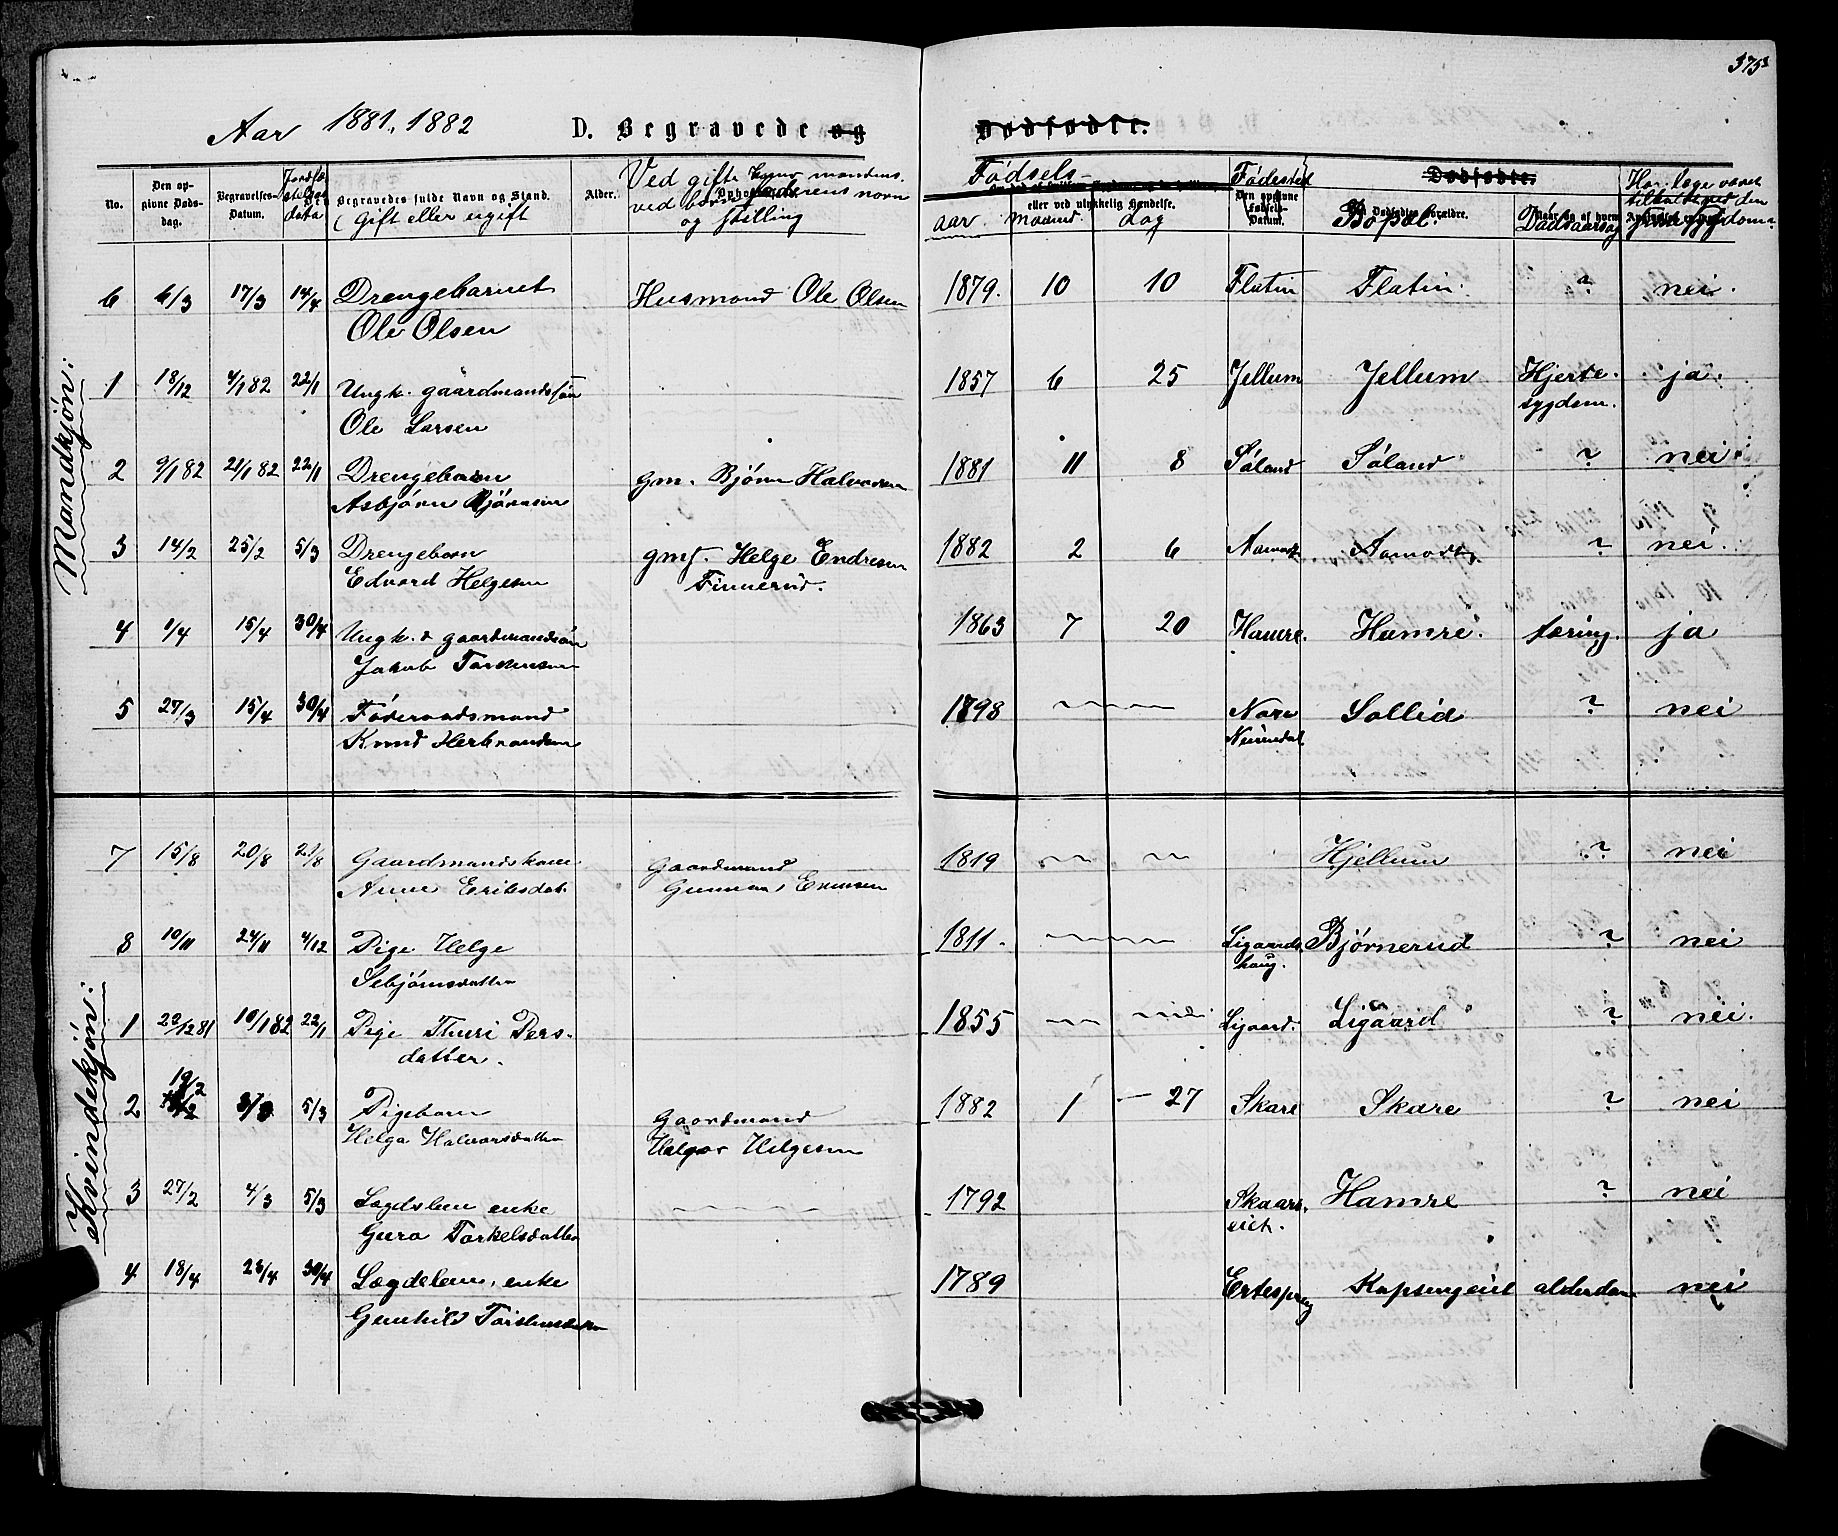 375
Aar 1881, 1882 D. Begravede og Dødfødte.
No. Den opgivne Dødsdag. Begravelses-Datum. Jordfæstelses data Begravedes fulde Navn og Stand. (Gift eller ugift Alder. Ved gifte koner mandens, ved børn faderens navn og stilling
Fødsels- aar maaned dag Fødested Bopæl. Dødsaarsag Har læge været tilkaldt
eller ved ulykkelig Hændelse.
Dødfødte.
Mandkjøn:
6 6/3 17/3 14/4 Drengebarnet Husmand Ole Olsen 1879. 10 10 Flatin Flatin. ? nei.
Ole Olsen
1 18/12 4/1 82 22/1 Ungk. gaardmandssøn 1857 6 25 Jellum Jellum Hjerte- ja.
Ole Larsen sygdom.
2 9/1 82 21/1 82 22/1 Drengebarn gm. Bjørn Halvorsen 1881 11 8 Søland Søland ? nei
Asbjørn Bjørnsen
3 14/2 25/2 5/3 Drengebarn gmf. Helge Endresen 1882 2 6 Aamodt Aamodt ? nei.
Edvard Helgesen Finnerud.
4 1/4 15/4 30/4 Ungk. & gaardmandssøn 1863 7 20 Hamre. Hamre. tæring. ja
Jakob Torstensen
5 27/3 15/4 30/4 Føderaadsmand 1798 Nore Sollid ? nei
Knud Herbrandsen Numedal
Kvindekjøn:
7 15/8 20/8 21/8 Gaardmandskone Gaardmand 1819 Hjellum ? nei
Anne Eriksdat. Gunnar Evensen
8 10/11 24/11 4/12 Pige Helge 1811. Ligaards Bjørnerud ? nei
Sebjørnsdatter haug.
1 22/12 81 10/1 82 22/1 Pige Thuri Pers- 1855 Ligaard. Ligaard ? nei.
datter.
2 19/2 3/3 5/3 Pigebarn Gaardmand 1882 1 27 Skare Skare ? nei
Helga Halvorsdatter Halgor Helgesen
3 27/2 4/3 5/3 Lægdslem enke 1792 Skaars- Hamre ? nei
Guro Torkelsdatter eiet.
4 18/4 23/4 30/4 Lægdslem, enke 1789 Ertespreng Kopsengeiet alderdom nei
Gunhild Torstensdatter